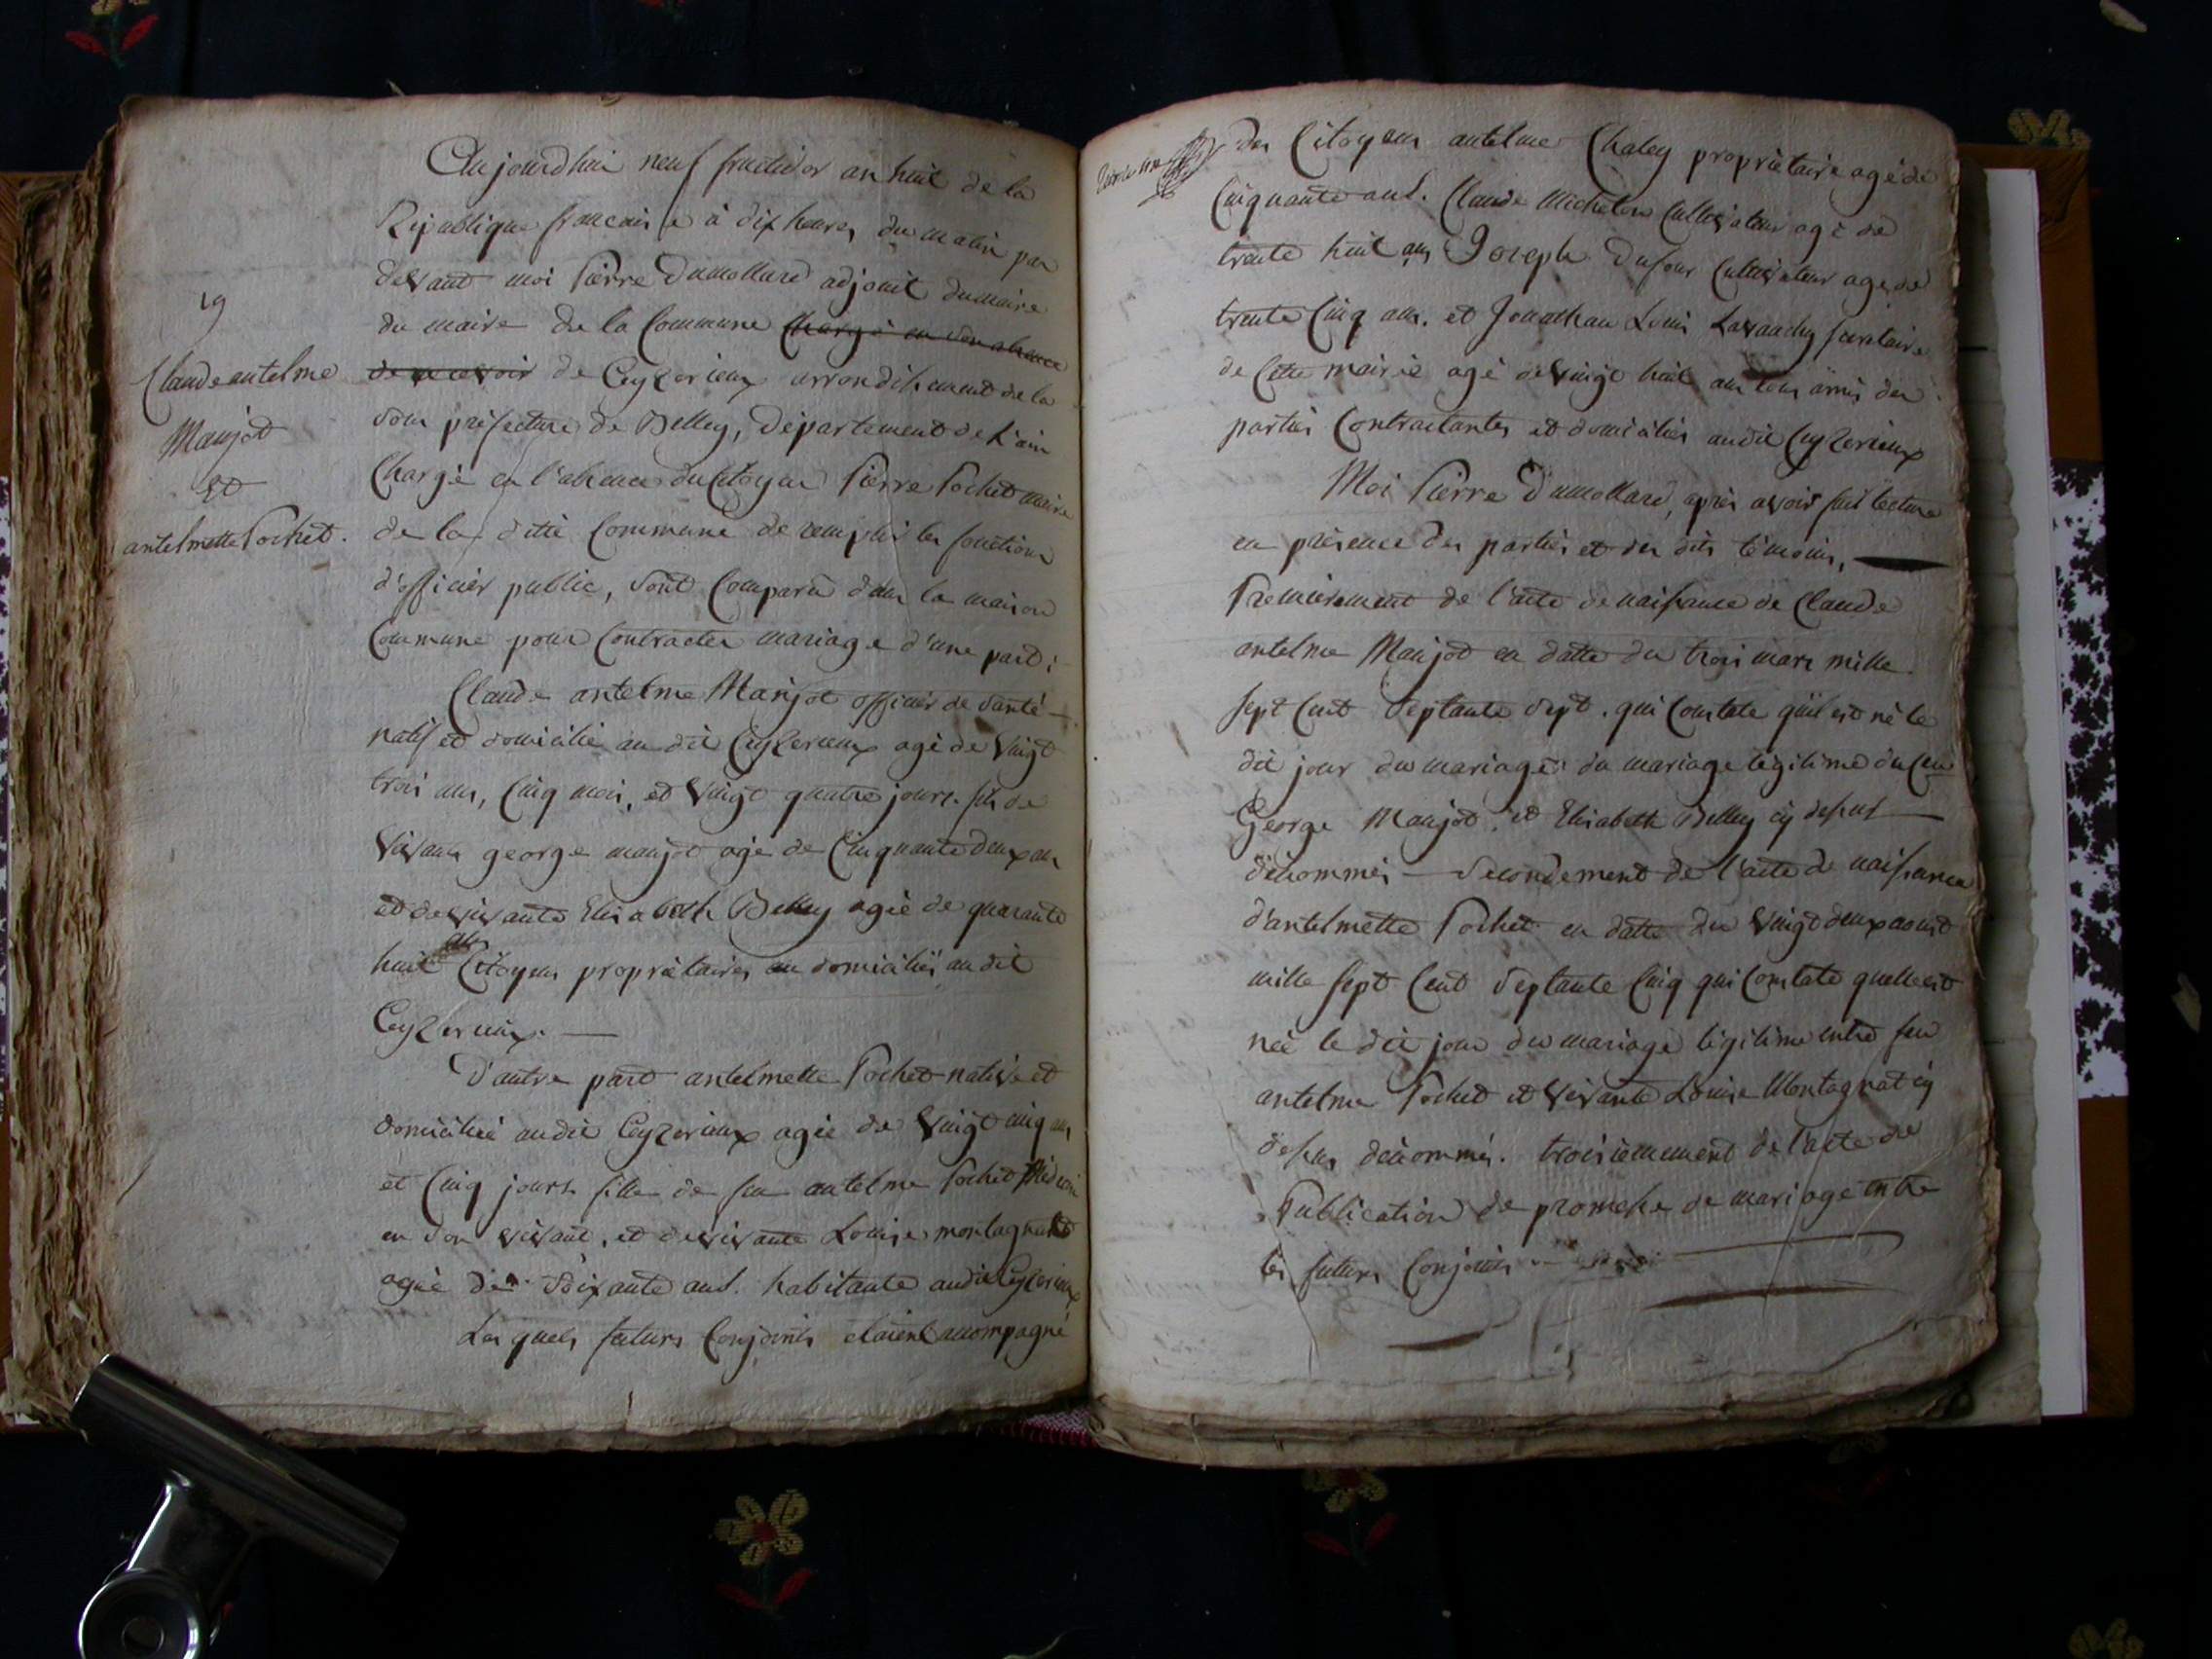 19
Claude antelme
Manjot
et
antelmette Pochet.
Aujourdhui neuf fructidor an huit de la
Republique francaise à dix heures du matin par
devant moi Pierre Dumollard adjoint dumaire
du maire de la Commune Chargé en son absence
de recevoir de Ceyzerieux arrondissement de la
sous prefecture de Belley, département de l'ain
Chargé en l'absence du Citoyen Pierre Pochet maire
de la ditte Commune de remplir les fonctions
d'officier public, sont Comparu dans la maison
Commune pour Contracter mariage d'une part;
Claude antelme Manjot officier de santé
natif et domicilié au dit Ceyzerieux agé de vingt
trois ans, Cinq mois, et vingt quatre jours. fils de
vivans george manjot agé de Cinquante deux ans
et de vivante Elisabeth Belley agée de quarante
huit ans Citoyens propriétaires domiciliés au dit
Ceyzerieux.
D'autre part antelmette Pochet native et
domiciliée audit Ceyzerieux agée de vingt cinq ans
et Cinq jours. fille de feu antelme Pochet Médecin
en son vivant, et de vivante Louise montagnat
agée de soixante ans. habitante audit Ceyzerieux
Les quels futurs Conjoints etoient accompagné
des Citoyens antelme Chaley propriétaire agé de
Cinquante ans. Claude Michelon Cultivateur agé de
trente huit ans Joseph Dufour Cultivateur agé de
trente Cinq ans. et Jonathan Louis Lavanchy secretaire
de Cette mairie agé de vingt huit ans tous amis des
parties Contractantes et domiciliés audit Ceyzerieux
Moi Pierre Dumollard, après avoir fait lecture
en présence des parties et des dits témoins,
Premierement de l'acte de naissance de Claude
antelme Manjot en datte du trois mars mille
sept Cent septante sept. qui Constate qu'il est né le
dit jour du mariage du mariage légitime du
George Manjot, et Elisabeth Belley cy dessus
dénommés – Secondement de l'acte de naissance
d'antelmette Pochet en datte du vingt deux aoust
mille sept Cent septante Cinq qui Constate quelle est
née le dit jour du mariage légitime entre feu
antelme Pochet et vivante Louise Montagnat cy
dessus dénommés. troisiemement de l'acte de
Publication de promesse de mariage entre
les futurs Conjoints